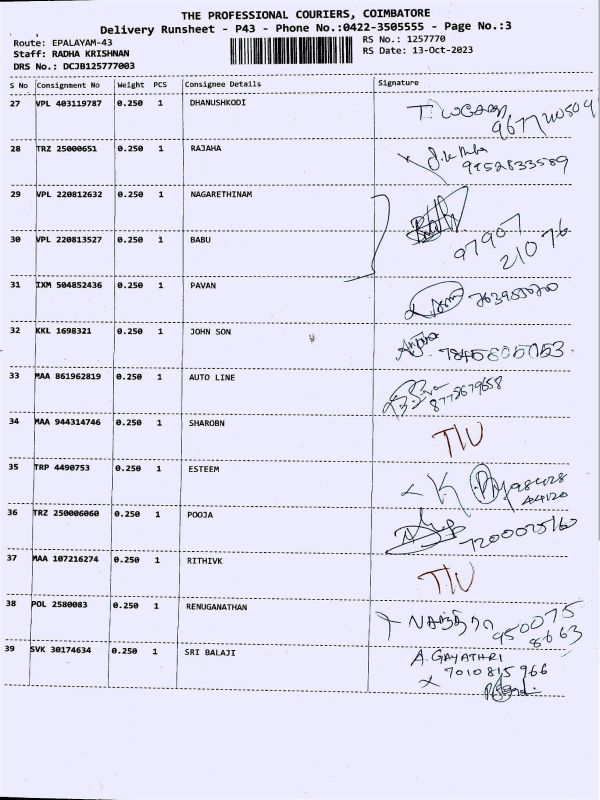 THE PROFESSIONAL COURIERS, COIMBATORE
Delivery Runsheet - P43 - Phone No.:0422-3505555 - Page No.:3
Route: EPALAYAM-43
RS No.: 1257770
Staff: RADHA KRISHNAN
RS Date: 13-Oct-2023
DRS No.: DCJB125777003
S No Consignment No Weight PCS Consignee Details Signature
27 VPL 403119787 0.250 1 DHANUSHKODI
28 TRZ 25000651 0.250 1 RAJAHA
9952833589
29 VPL 220812632 0.250 1 NAGARETHINAM
30 VPL 220813527 0.250 1 BABU
97907
21076
31 IXM 504852436 0.250 1 PAVAN
32 KKL 1698321 0.250 1 JOHN SON
33 MAA 861962819 0.250 1 AUTO LINE
34 MAA 944314746 0.250 1 SHAROBN
35 TRP 4490753 0.250 1 ESTEEM
36 TRZ 250006060 0.250 1 POOJA
7200025160
37 MAA 107216274 0.250 1 RITHIVK
38 POL 2580083 0.250 1 RENUGANATHAN
950075
8663
39 SVK 30174634 0.250 1 SRI BALAJI A.GAYATHRI
7010815966